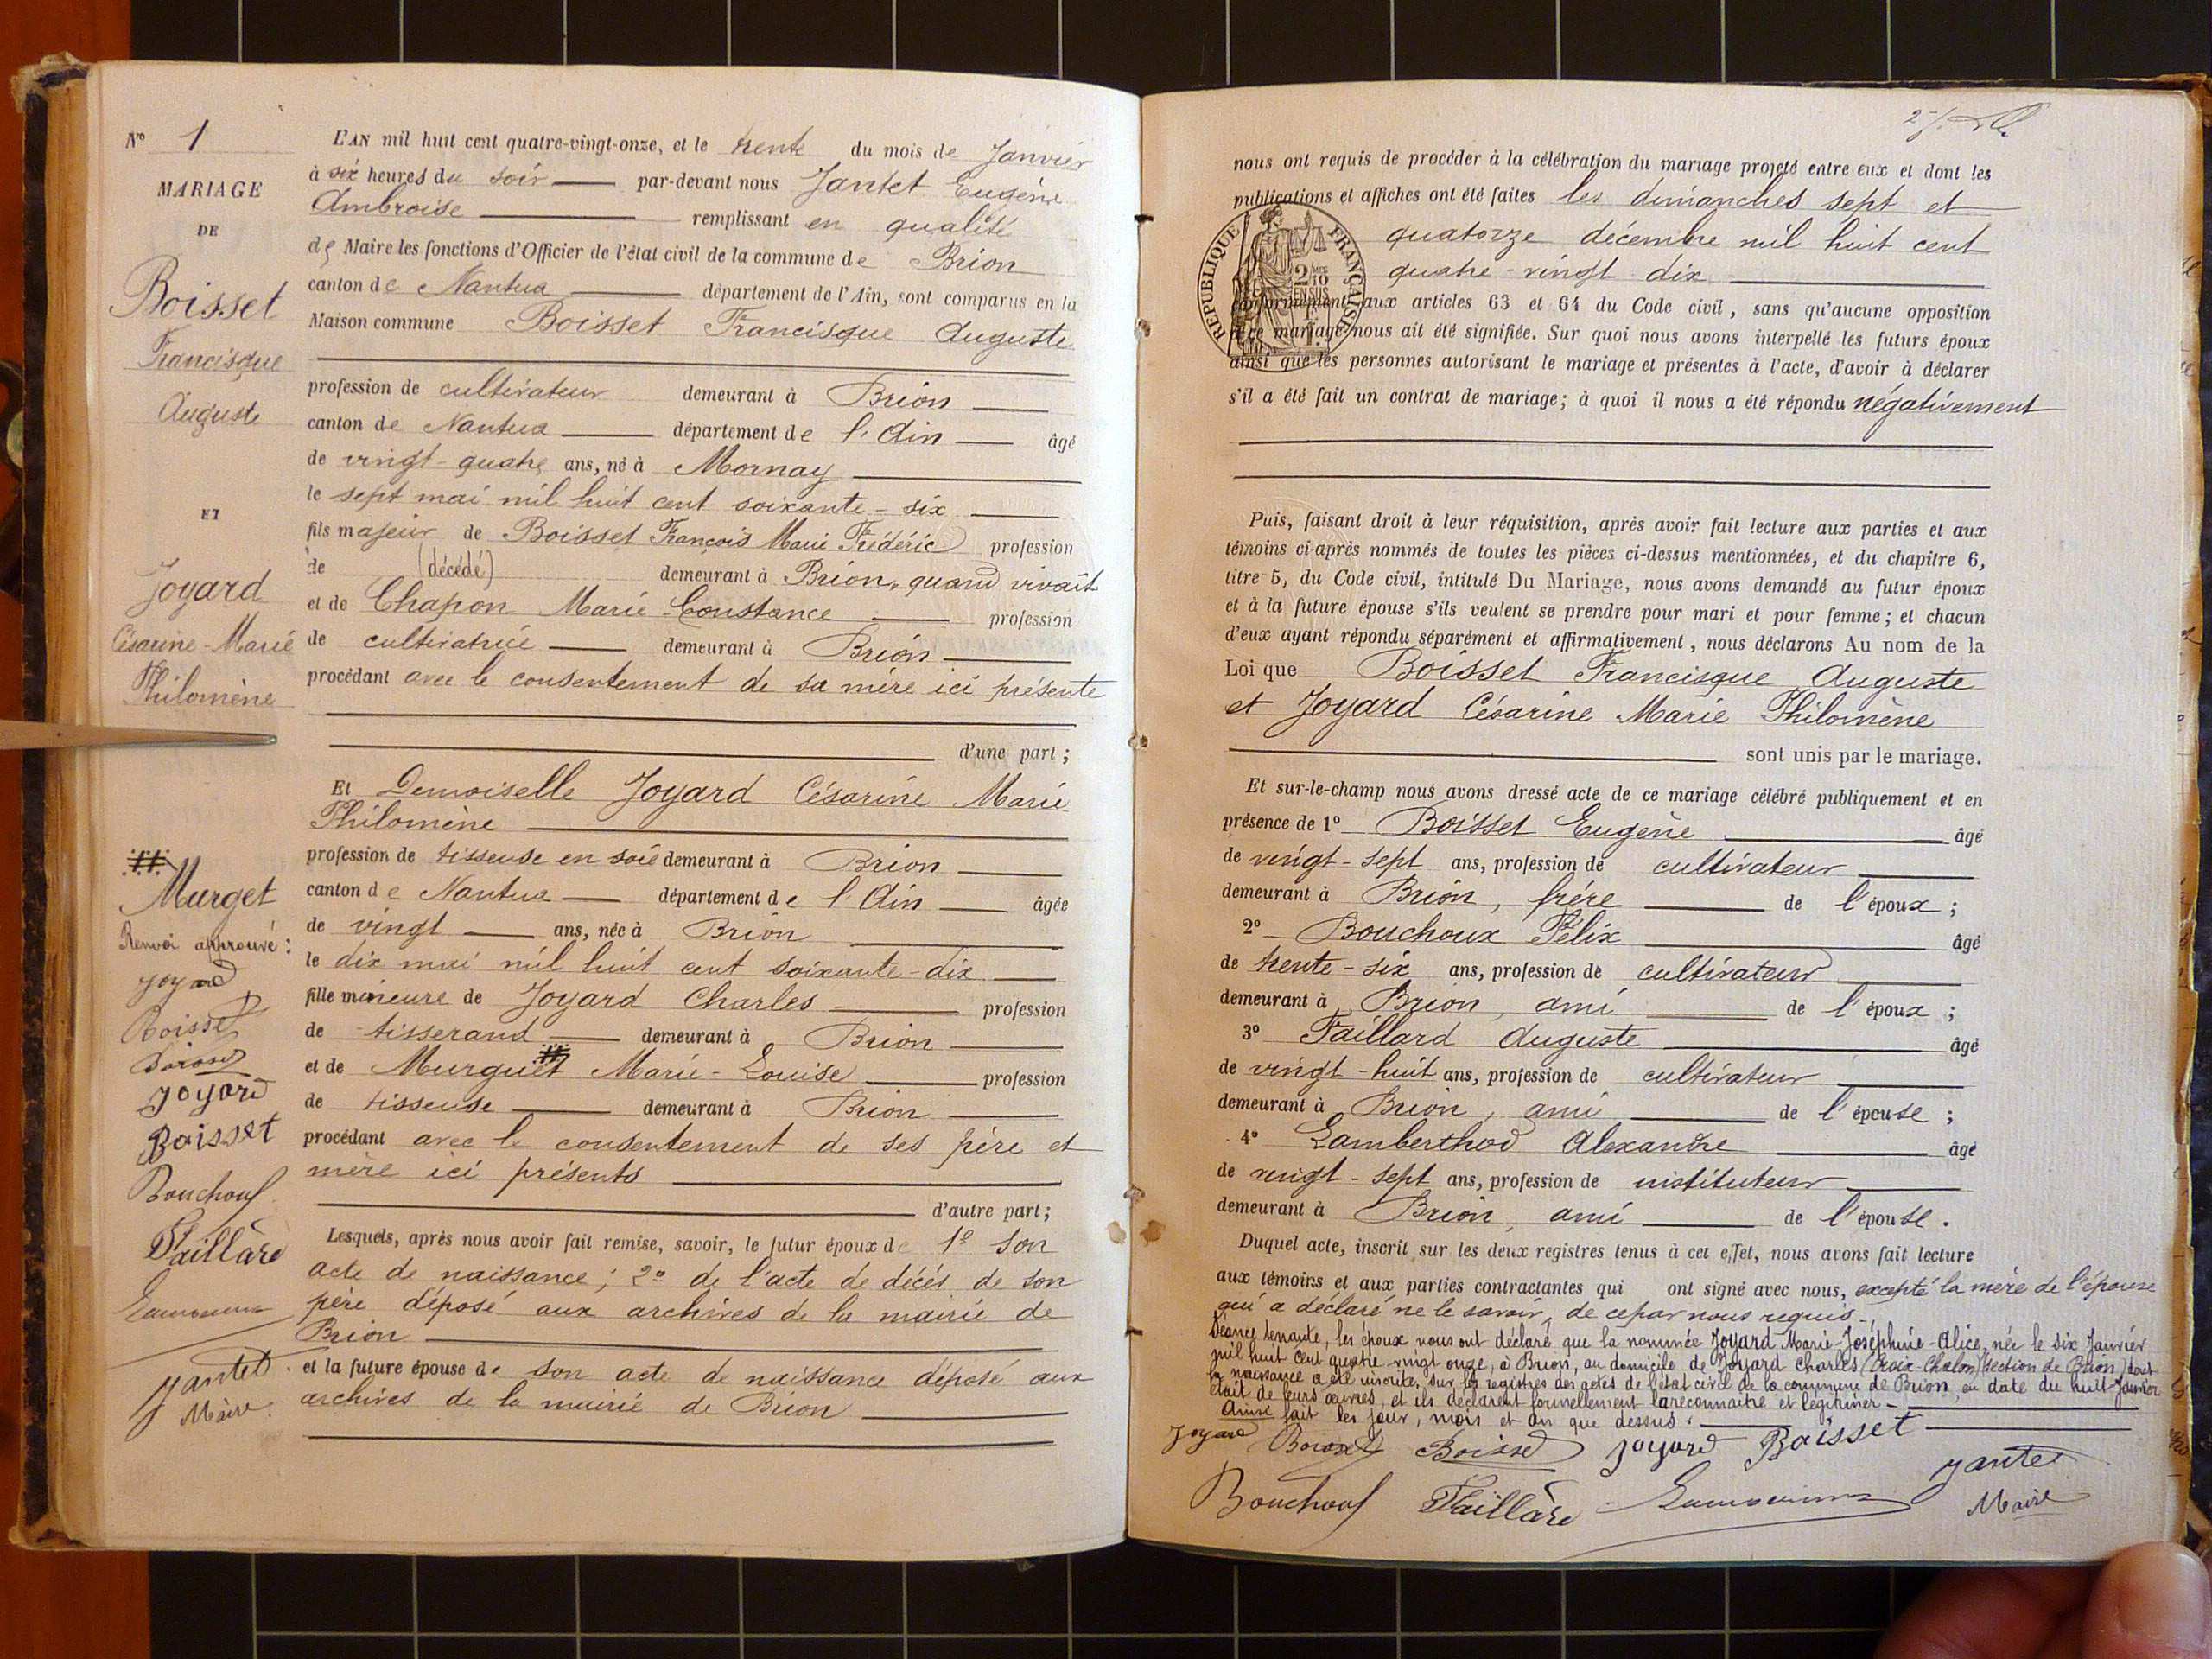 N° 1
MARIAGE
DE
Boisset
Francisque
Auguste
ET
Joyard
Césarine-Marie
Philomène
Murget
Renvoi approuvé :
Joyard
Boisset
Boisset
Joyard
Boisset
Bouchoux
Faillard
Jantet
Maire
L'AN mil huit cent quatre-vingt-onze, et le trente du mois de Janvier
à six heures du soir par-devant nous Jantet Eugène
Ambroise remplissant en qualité
de Maire les fonctions d'Officier de l'état civil de la commune de Brion
canton de Nantua département de l'Ain, sont comparus en la
Maison commune Boisset Francisque Auguste
profession de cultivateur demeurant à Brion
canton de Nantua département de l'Ain âgé
de vingt-quatre ans, né à Mornay
le sept mai mil huit cent soixante-six
fils majeur de Boisset François Marie Frédéric profession
de (décédé) demeurant à Brion, quand vivait
et de Chapon Marie Constance profession
de cultivatrice demeurant à Brion
procédant avec le consentement de sa mère ici présente
d'une part ;
Et Demoiselle Joyard Césarine Marie
Philomène
profession de tisseuse en soie demeurant à Brion
canton de Nantua département de l'Ain âgée
de vingt ans, née à Brion
le dix mai mil huit cent soixante-dix
fille mineure de Joyard Charles profession
de tisserand demeurant à Brion
et de Murguet Marie-Louise profession
de tisseuse demeurant à Brion
procédant avec le consentement de ses père et
mère ici présents
d'autre part ;
Lesquels, après nous avoir fait remise, savoir, le futur époux de 1° son
acte de naissance ; 2° de l'acte de décès de son
père déposé aux archives de la mairie de
Brion
et la future épouse de son acte de naissance déposé aux
archives de la mairie de Brion
nous ont requis de procéder à la célébration du mariage projeté entre eux et dont les
publications et affiches ont été faites les dimanches sept et
quatorze décembre mil huit cent
quatre-vingt-dix
RÉPUBLIQUE FRANÇAISE
2/10 EN SUS
conformément aux articles 63 et 64 du Code civil, sans qu'aucune opposition
à ce mariage nous ait été signifiée. Sur quoi nous avons interpellé les futurs époux
ainsi que les personnes autorisant le mariage et présentes à l'acte, d'avoir à déclarer
s'il a été fait un contrat de mariage ; à quoi il nous a été répondu négativement
Puis, faisant droit à leur réquisition, après avoir fait lecture aux parties et aux
témoins ci-après nommés de toutes les pièces ci-dessus mentionnées, et du chapitre 6,
titre 5, du Code civil, intitulé Du Mariage, nous avons demandé au futur époux
et à la future épouse s'ils veulent se prendre pour mari et pour femme ; et chacun
d'eux ayant répondu séparément et affirmativement, nous déclarons Au nom de la
Loi que Boisset Francisque Auguste
et Joyard Césarine Marie Philomène
sont unis par le mariage.
Et sur-le-champ nous avons dressé acte de ce mariage célébré publiquement et en
présence de 1° Boisset Eugène âgé
de vingt-sept ans, profession de cultivateur
demeurant à Brion, frère de l'époux ;
2° Bouchoux Félix âgé
de trente-six ans, profession de cultivateur
demeurant à Brion, ami de l'époux ;
3° Faillard Auguste âgé
de vingt-huit ans, profession de cultivateur
demeurant à Brion, ami de l'épouse ;
4° Lamberthod Alexandre âgé
de vingt-sept ans, profession de instituteur
demeurant à Brion, ami de l'épouse.
Duquel acte, inscrit sur les deux registres tenus à cet effet, nous avons fait lecture
aux témoins et aux parties contractantes qui ont signé avec nous, excepté la mère de l'épouse
qui a déclaré ne le savoir, de ce par nous requis.
Séance tenante, les époux nous ont déclaré que la nommée Joyard Marie-Joséphine-Alice, née le six Janvier
mil huit cent quatre-vingt onze, à Brion, au domicile de Joyard Charles (Croix-Chalon) section de Brion) dont
la naissance a été inscrite, sur les registres des actes de l'état civil de la commune de Brion, en date du huit Janvier
était de leurs œuvres, et ils déclarent formellement la reconnaître et légitimer
Ainsi fait les jour, mois et an que dessus.
Joyard Boisset Boisset Joyard Boisset
Bouchoux Faillard Jantet
Maire